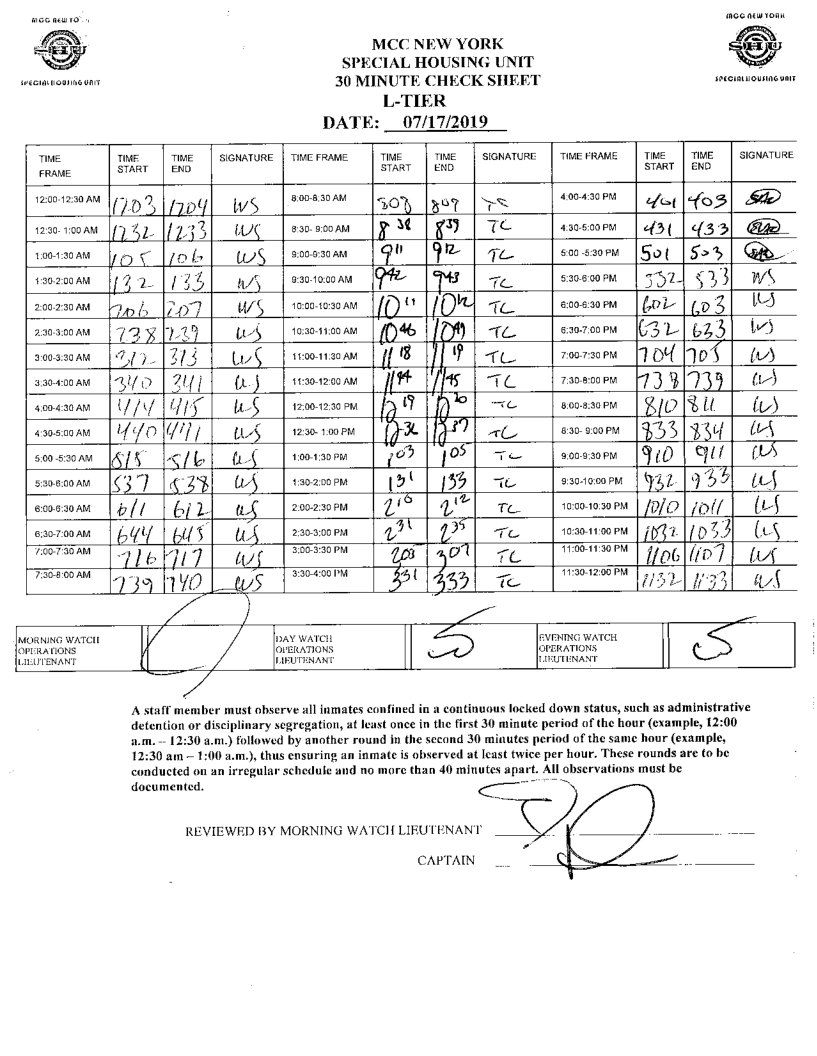 MCC NEW YORK
SPECIAL HOUSING UNIT
MCC NEW YORK
SPECIAL HOUSING UNIT
MCC NEW YORK
SPECIAL HOUSING UNIT
30 MINUTE CHECK SHEET
L-TIER
DATE: 07/17/2019
TIME FRAME TIME START TIME END SIGNATURE TIME FRAME TIME START TIME END SIGNATURE TIME FRAME TIME START TIME END SIGNATURE
12:00-12:30 AM 1203 1204 WS 8:00-8:30 AM 808 809 4:00-4:30 PM 401 403
12:30- 1:00 AM 1232 1233 WS 8:30- 9:00 AM 838 839 TC 4:30-5:00 PM 431 433
1:00-1:30 AM 105 106 WS 9:00-9:30 AM 911 912 TC 5:00 -5:30 PM 501 503
1:30-2:00 AM 132 133 WS 9:30-10:00 AM 942 943 TC 5:30-6:00 PM 532 533 WS
2:00-2:30 AM 206 207 WS 10:00-10:30 AM 1011 1012 TC 6:00-6:30 PM 602 603 WS
2:30-3:00 AM 738 739 WS 10:30-11:00 AM 1046 1049 TC 6:30-7:00 PM 632 633 WS
3:00-3:30 AM 312 313 WS 11:00-11:30 AM 1118 1119 TC 7:00-7:30 PM 704 705 WS
3:30-4:00 AM 340 341 WS 11:30-12:00 AM 1144 1145 TC 7:30-8:00 PM 738 739 WS
4:00-4:30 AM 414 415 WS 12:00-12:30 PM 1219 1220 TC 8:00-8:30 PM 810 811 WS
4:30-5:00 AM 440 441 WS 12:30- 1:00 PM 1236 1237 TC 8:30- 9:00 PM 833 834 WS
5:00 -5:30 AM 515 516 WS 1:00-1:30 PM 103 105 TC 9:00-9:30 PM 910 911 WS
5:30-6:00 AM 537 538 WS 1:30-2:00 PM 131 133 TC 9:30-10:00 PM 932 933 WS
6:00-6:30 AM 611 612 WS 2:00-2:30 PM 210 212 TC 10:00-10:30 PM 1010 1011 WS
6:30-7:00 AM 644 645 WS 2:30-3:00 PM 231 235 TC 10:30-11:00 PM 1032 1033 WS
7:00-7:30 AM 716 717 WS 3:00-3:30 PM 305 307 TC 11:00-11:30 PM 1106 1107 WS
7:30-8:00 AM 739 740 WS 3:30-4:00 PM 331 333 TC 11:30-12:00 PM 1132 1133 WS
MORNING WATCH OPERATIONS LIEUTENANT
DAY WATCH OPERATIONS LIEUTENANT
EVENING WATCH OPERATIONS LIEUTENANT
A staff member must observe all inmates confined in a continuous locked down status, such as administrative
detention or disciplinary segregation, at least once in the first 30 minute period of the hour (example, 12:00
a.m. – 12:30 a.m.) followed by another round in the second 30 minutes period of the same hour (example,
12:30 am – 1:00 a.m.), thus ensuring an inmate is observed at least twice per hour. These rounds are to be
conducted on an irregular schedule and no more than 40 minutes apart. All observations must be
documented.
REVIEWED BY MORNING WATCH LIEUTENANT
CAPTAIN